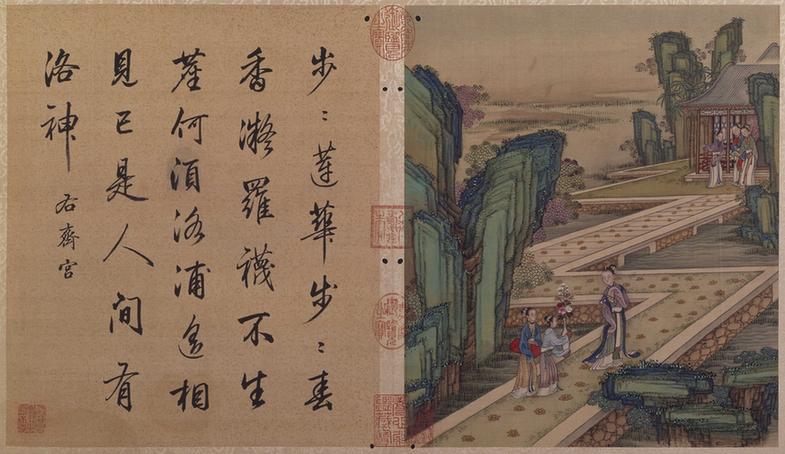 步〻蓮華步〻春
香凝羅襪不生
塵何須洛浦遙相
見已是人間有
洛神
右齊宮